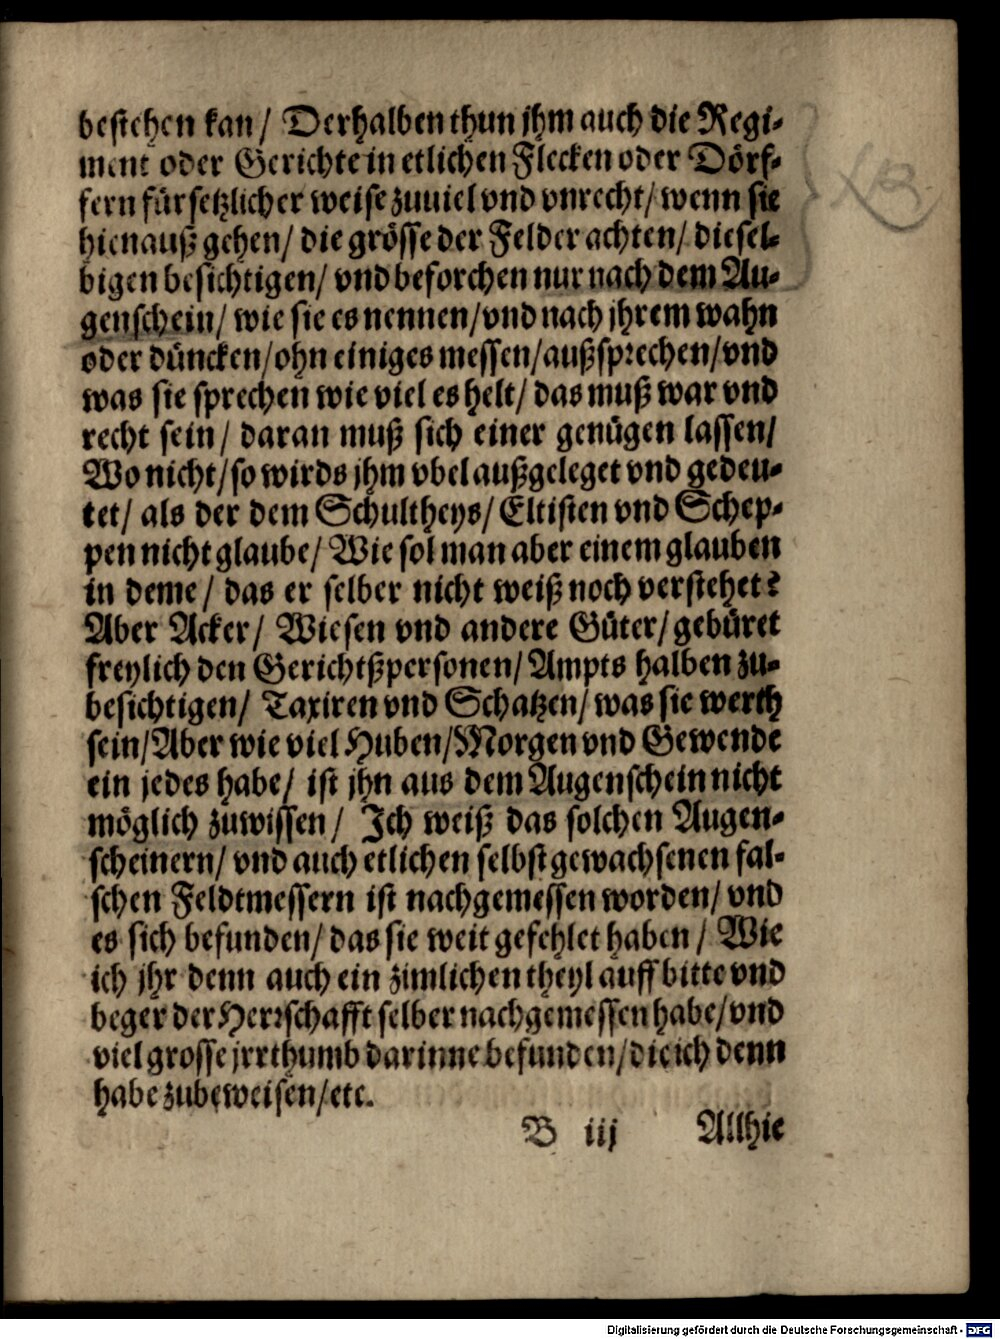 bestehen kan/ Derhalben thun jhm auch die Regi-
ment oder Gerichte in etlichen Flecken oder Dörf-
fern fürsetzlicher weise zuuiel vnd vnrecht/ wenn sie
hienauß gehen/ die grösse der Felder achten/ diesel-
bigen besichtigen/ vnd beforchen nur nach dem Au-
genschein/ wie sie es nennen/ vnd nach jhrem wahn
oder düncken/ ohn einiges messen/ außsprechen/ vnd
was sie sprechen wie viel es helt/ das muß war vnd
recht sein/ daran muß sich einer genügen lassen/
Wo nicht/ so wirds jhm vbel außgeleget vnd gedeu-
tet/ als der dem Schultheys/ Eltisten vnd Schep-
pen nicht glaube/ Wie sol man aber einem glauben
in deme/ das er selber nicht weiß noch verstehet?
Aber Acker/ Wiesen vnd andere Güter/ gebüret
freylich den Gerichtßpersonen/ Ampts halben zu-
besichtigen/ Taxiren vnd Schatzen/ was sie werth
sein/ Aber wie viel Huben/ Morgen vnd Gewende
ein jedes habe/ ist jhn aus dem Augenschein nicht
möglich zuwissen/ Ich weiß das solchen Augen-
scheinern/ vnd auch etlichen selbst gewachsenen fal-
schen Feldtmessern ist nachgemessen worden/ vnd
es sich befunden/ das sie weit gefehlet haben/ Wie
ich jhr denn auch ein zimlichen theyl auff bitte vnd
beger der Herrschafft selber nachgemessen habe/ vnd
viel grosse jrrthumb darinne befunden/ die ich denn
habe zubeweisen/ etc.
B iij Allhie
Digitalisierung gefördert durch die Deutsche Forschungsgemeinschaft - DFG